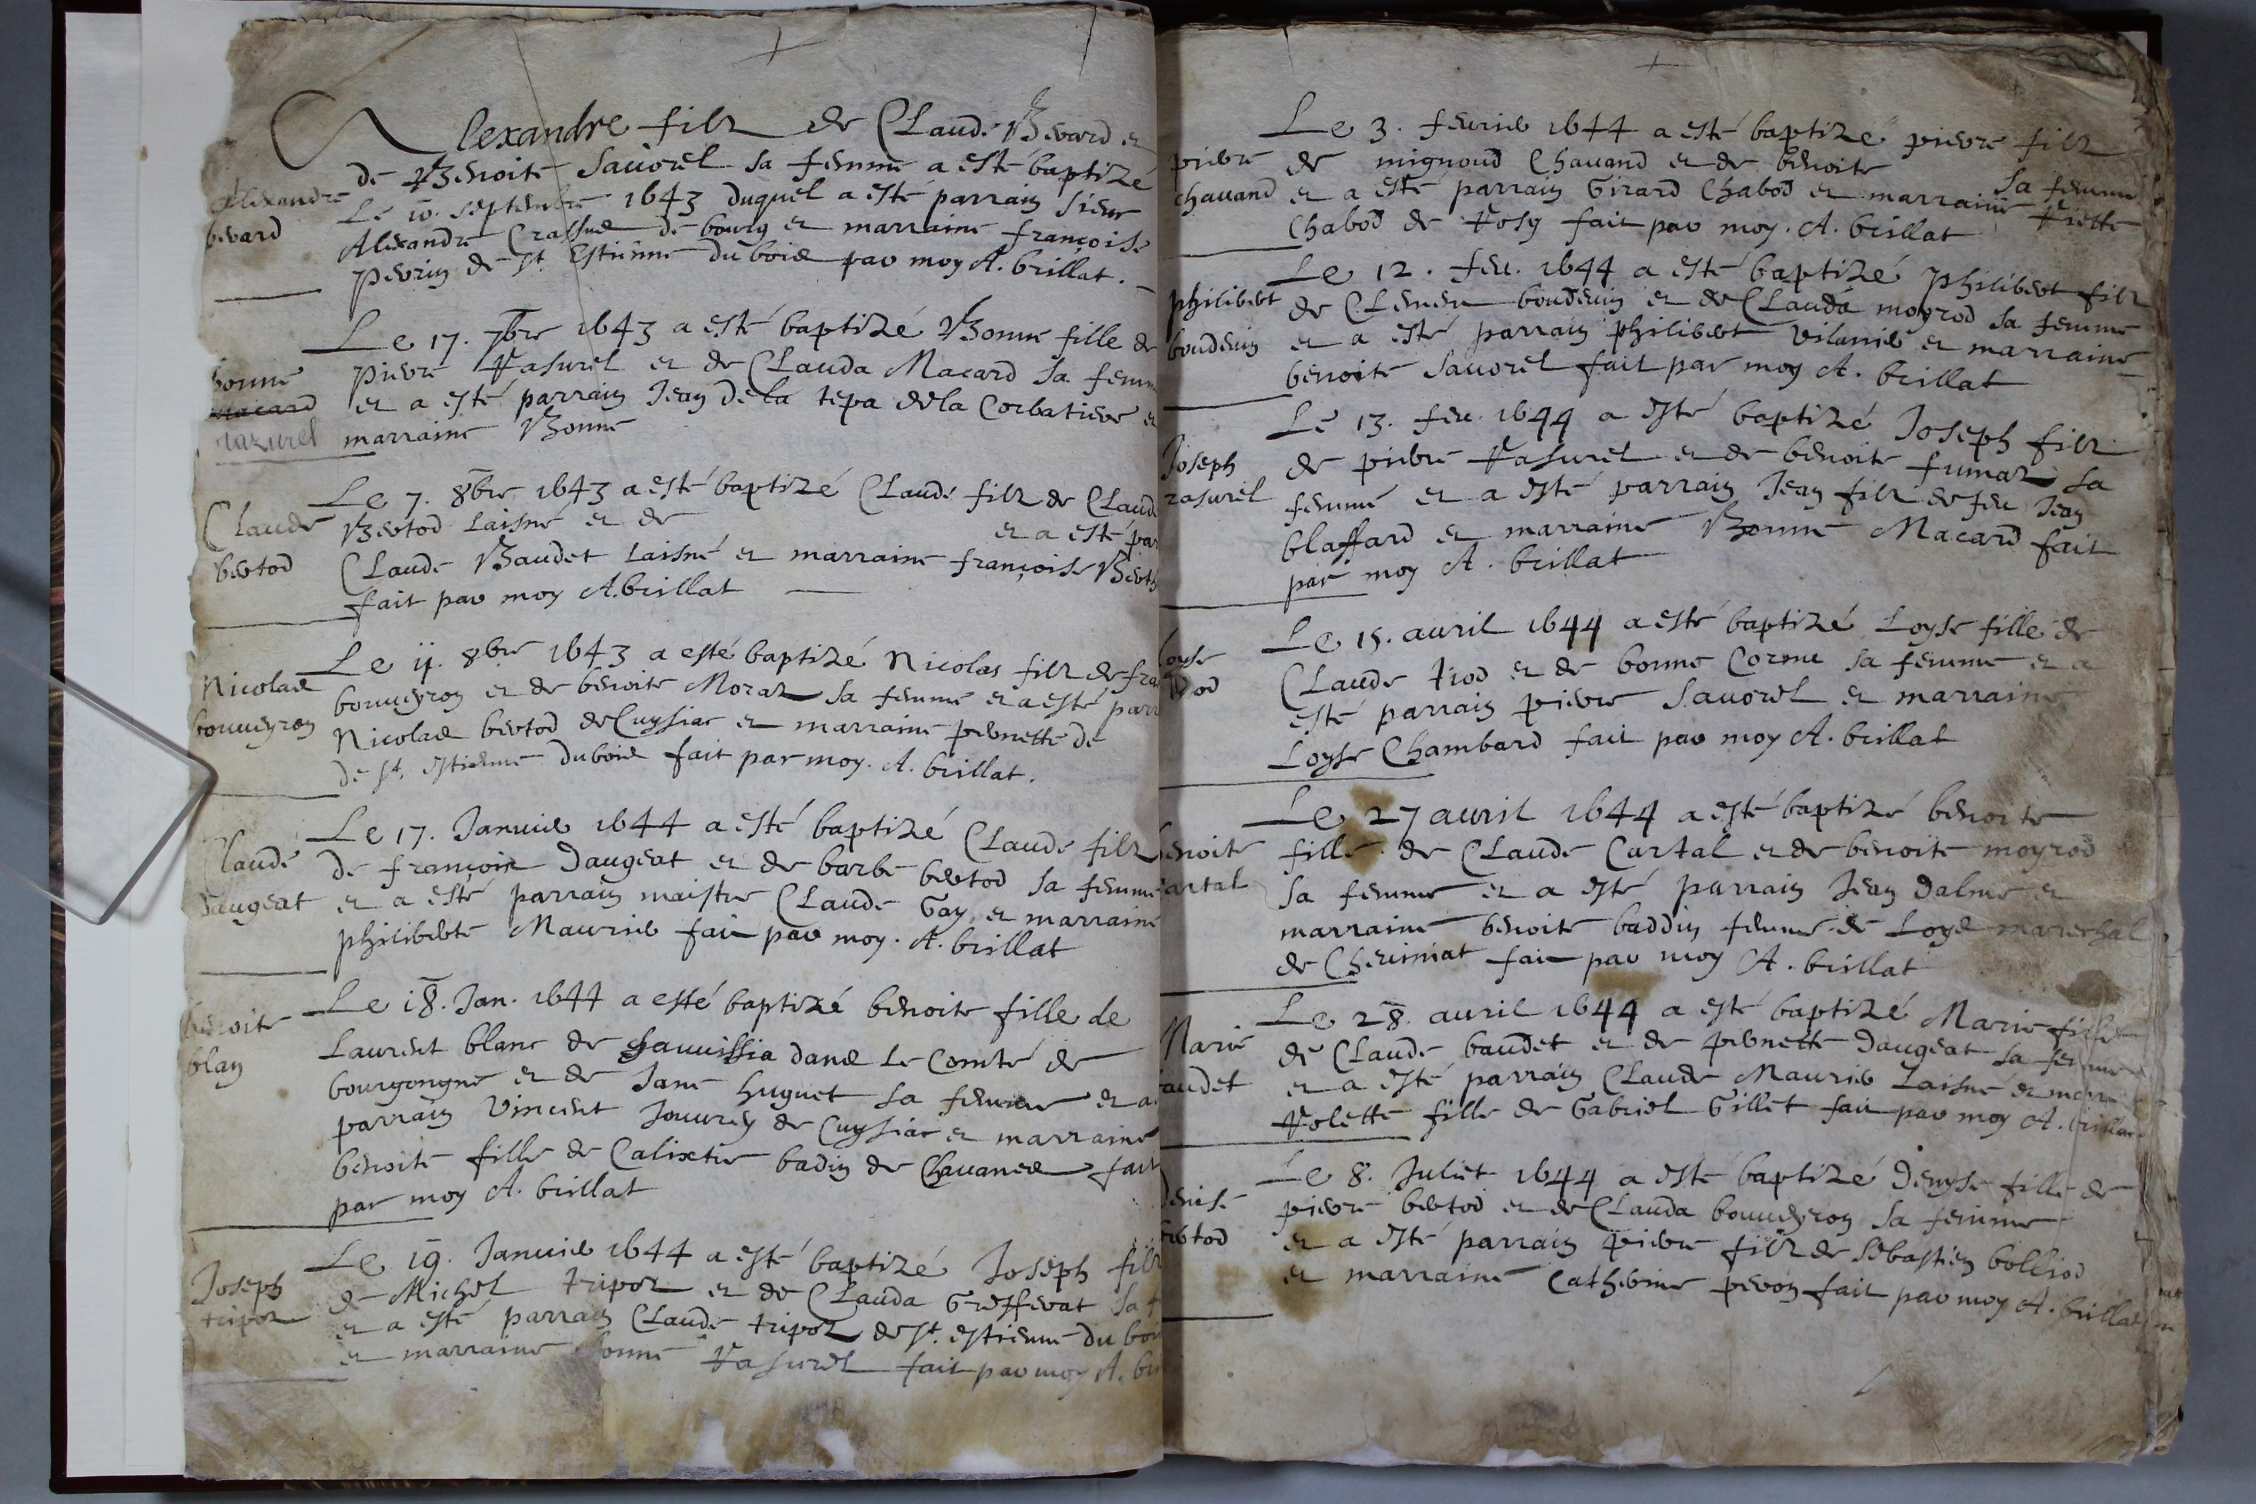 Alexandre filz de Claude Berard et
de Benoite Sauorel sa femme a esté baptizé
Alexandre
berard
Le 10. septembre 1643 duquel a esté parrain sieur
Alexandre Crassus de bourg et marraine françoise
Perrin de st. Estienne du bois par moy A. brillat.
Le 17. 7bre 1643 a esté baptizé Bonne fille de
bonne
macard
razurel
pierre Rasurel et de Clauda Macard sa femme
et a esté parrain Jean de la tepa de la Corbatiere et
marraine Bonne
Le 7. 8bre 1643 a esté baptizé Claude filz de Claude
Claude
bertod
Bertod laisné et de
et a esté par
Claude Baudet laisné et marraine françoise Berth
fait par moy A. brillat
Le 11. 8bre 1643 a esté baptizé Nicolas filz de fra
Nicolas
bouueyron
bouueyron et de benoite Moraz sa femme et a esté parr
Nicolas bertod de Cuysiac et marraine pernette de
de st. estienne du bois fait par moy. A. brillat.
Le 17. Januier 1644 a esté baptizé Claude filz
Claude
daugeat
de françois daugeat et de barbe bertod sa femme
et a esté parrain maistre Claude Gay et marraine
philiberte Maurier fait par moy. A. brillat
Le 18. Jan. 1644 a esté baptizé benoite fille de
benoite
blan
Laurent blanc de chauissia dans Le Comté de
bourgongne et de Jane huguet sa femme et a
parrain Vincent Jouurey de Cuysiac et marraine
benoite fille de Calixtre badin de Chauanes fait
par moy A. brillat
Le 19. Januier 1644 a esté baptizé Joseph filz
Joseph
tripoz
de Michel tripoz et de Clauda Grefferat sa f
et a esté parrain Claude tripoz de st. estienne du boi
et marraine bonne Rasurel fait par moy A. bri
Le 3. feurier 1644 a esté baptizé pierre filz
pierre
chauand
de mignoud Chauand et de benoite
sa femme
et a esté parrain Girard Chabod et marraine Riette
Chabod de Rosy fait par moy. A. brillat
Le 12. feu. 1644 a esté baptizé Philibert filz
philibert
bondeuin
de Clemen bondeuin et de Clauda moyrod sa femme
et a esté parrain philibert vilanier et marraine
benoite Sauorel fait par moy A. brillat
Le 13. feu. 1644 a esté baptizé Joseph filz
Joseph
rasurel
de pierre Rasurel et de benoite fumaz sa
femme et a esté parrain Jean filz de feu Jean
blaffard et marraine Bonne Macard fait
par moy A. brillat
Le 15. auril 1644 a esté baptizé Loyse fille de
oyse
tiod
Claude tiod et de bonne Cornu sa femme et a
esté parrain pierre Sauorel et marraine
Loyse Chambard fait par moy A. brillat
Le 27 auril 1644 a esté baptizé benoite
benoite
cartal
fille de Claude Cartal et de benoite moyrod
sa femme et a esté parrain Jean dalme et
marraine benoite baddin femme de Loys mareschal
de Cheriniat fait par moy A. brillat
Le 28. auril 1644 a esté baptizé Marie fille
Marie
baudet
de Claude baudet et de pernette daugeat sa femme
et a esté parrain Claude Maurier Laisné et marr
Rolette fille de Gabriel Gillet fait par moy A. brillat
Le 8. Juliet 1644 a esté baptizé Denyse fille de
denise
bertod
pierre bertod et de Clauda bouueyron sa femme
et a esté parrain pierre filz de Sebastien bolliod
et marraine Catherine peron fait par moy A. brillat